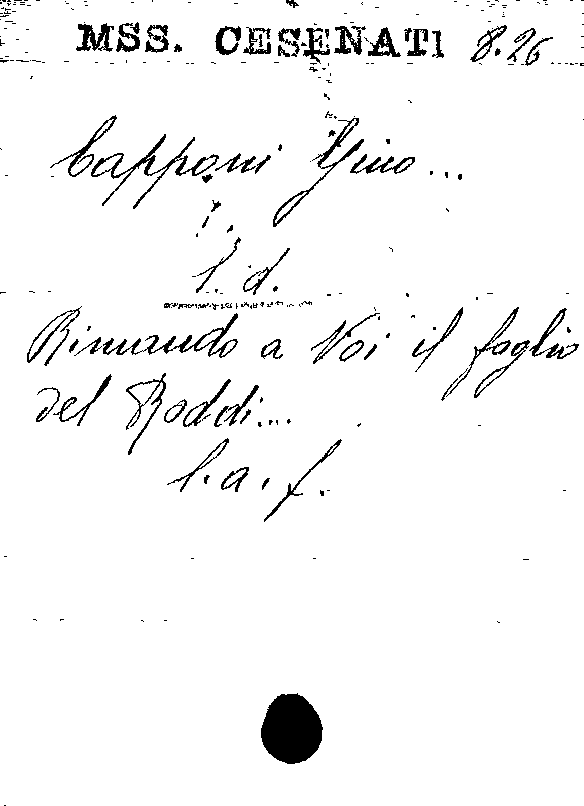 MSS. CESENATI 8.26
Capponi Gino...
l. d.
Rimando a Voi il foglio
del Roddi...
l. a. f.